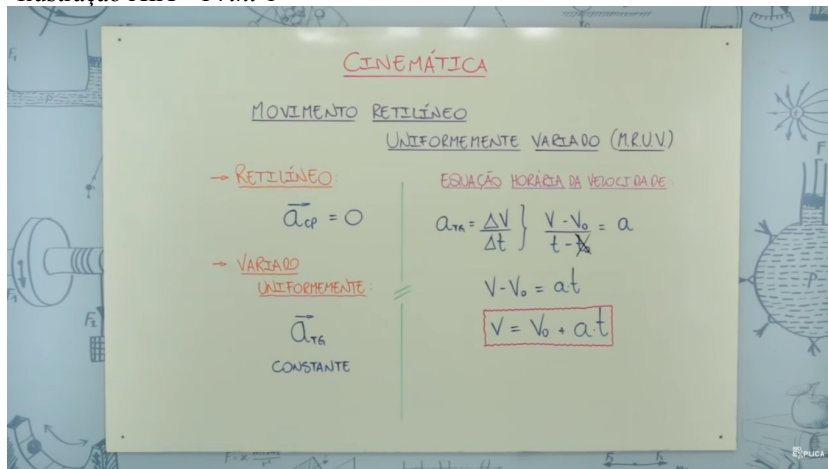 CINEMÁTICA
MOVIMENTO RETILÍNEO
UNIFORMEMENTE VARIADO (M.R.U.V.)
→ RETILÍNEO:
a⃗CP = 0
→ VARIADO
UNIFORMEMENTE:
a⃗TG
CONSTANTE
EQUAÇÃO HORÁRIA DA VELOCIDADE:
aTG = ΔV/Δt } V - V₀/t - t₀ = a
V - V₀ = a.t
V = V₀ + a.t
F₁
F₂
F
EXPLICA